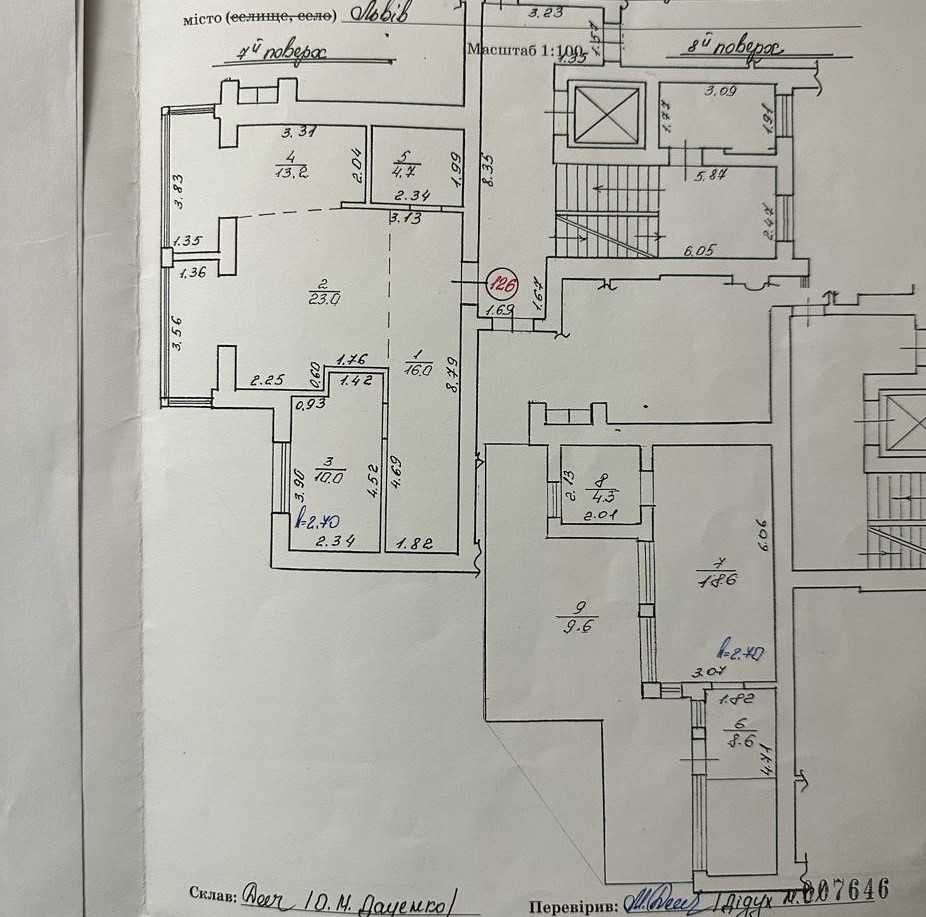 місто (селище, село) Львів
7й поверх
Масштаб 1:100
8й поверх
3.23
1.57
1.35
3.09
1.77
1.91
3.31
4
13.2
2.04
5
4.7
1.99
8.35
2.34
5.87
3.83
3.13
2.47
1.35
6.05
1.36
2
23.0
126
1.69
1.67
3.56
1.76
1
16.0
8.79
2.25
0.60
1.42
0.93
3
10.0
3.90
4.52
4.69
2.13
8
4.3
2.01
h=2.70
2.34
1.82
6.06
7
18.6
9
9.6
h=2.70
3.07
1.82
6
8.6
4.71
Склав: /О. М. Даценко/
Перевірив: /Дідух М.
007646